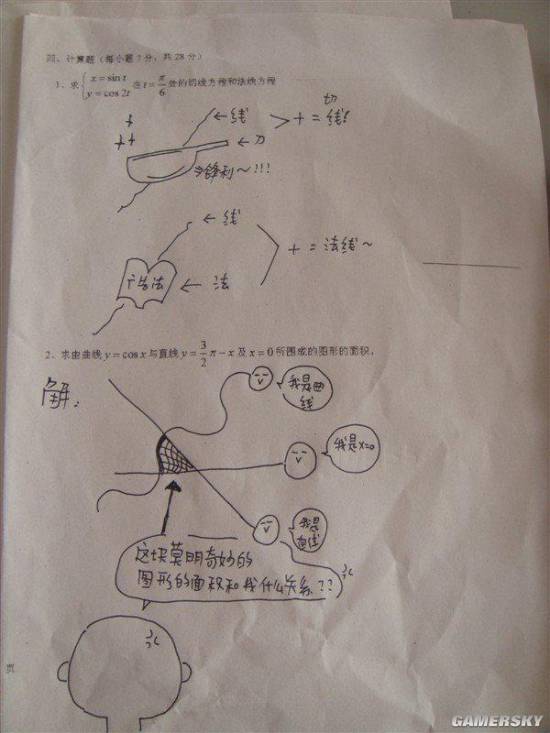 四、计算题（每小题7分，共28分）
1、求{x=sin t y=cos 2t 在t=π/6处的切线方程和法线方程
←线
>+=切线!
←刀
⇒锋利~!!!
←线
+=法线~
广告法
←法
2、求由曲线y=cosx与直线y=3/2π-x及x=0所围成的图形的面积。
解：
我是曲线
我是x=0
我是直线
这块莫明奇妙的
图形的面积和我什么关系??
页
GAMERSKY